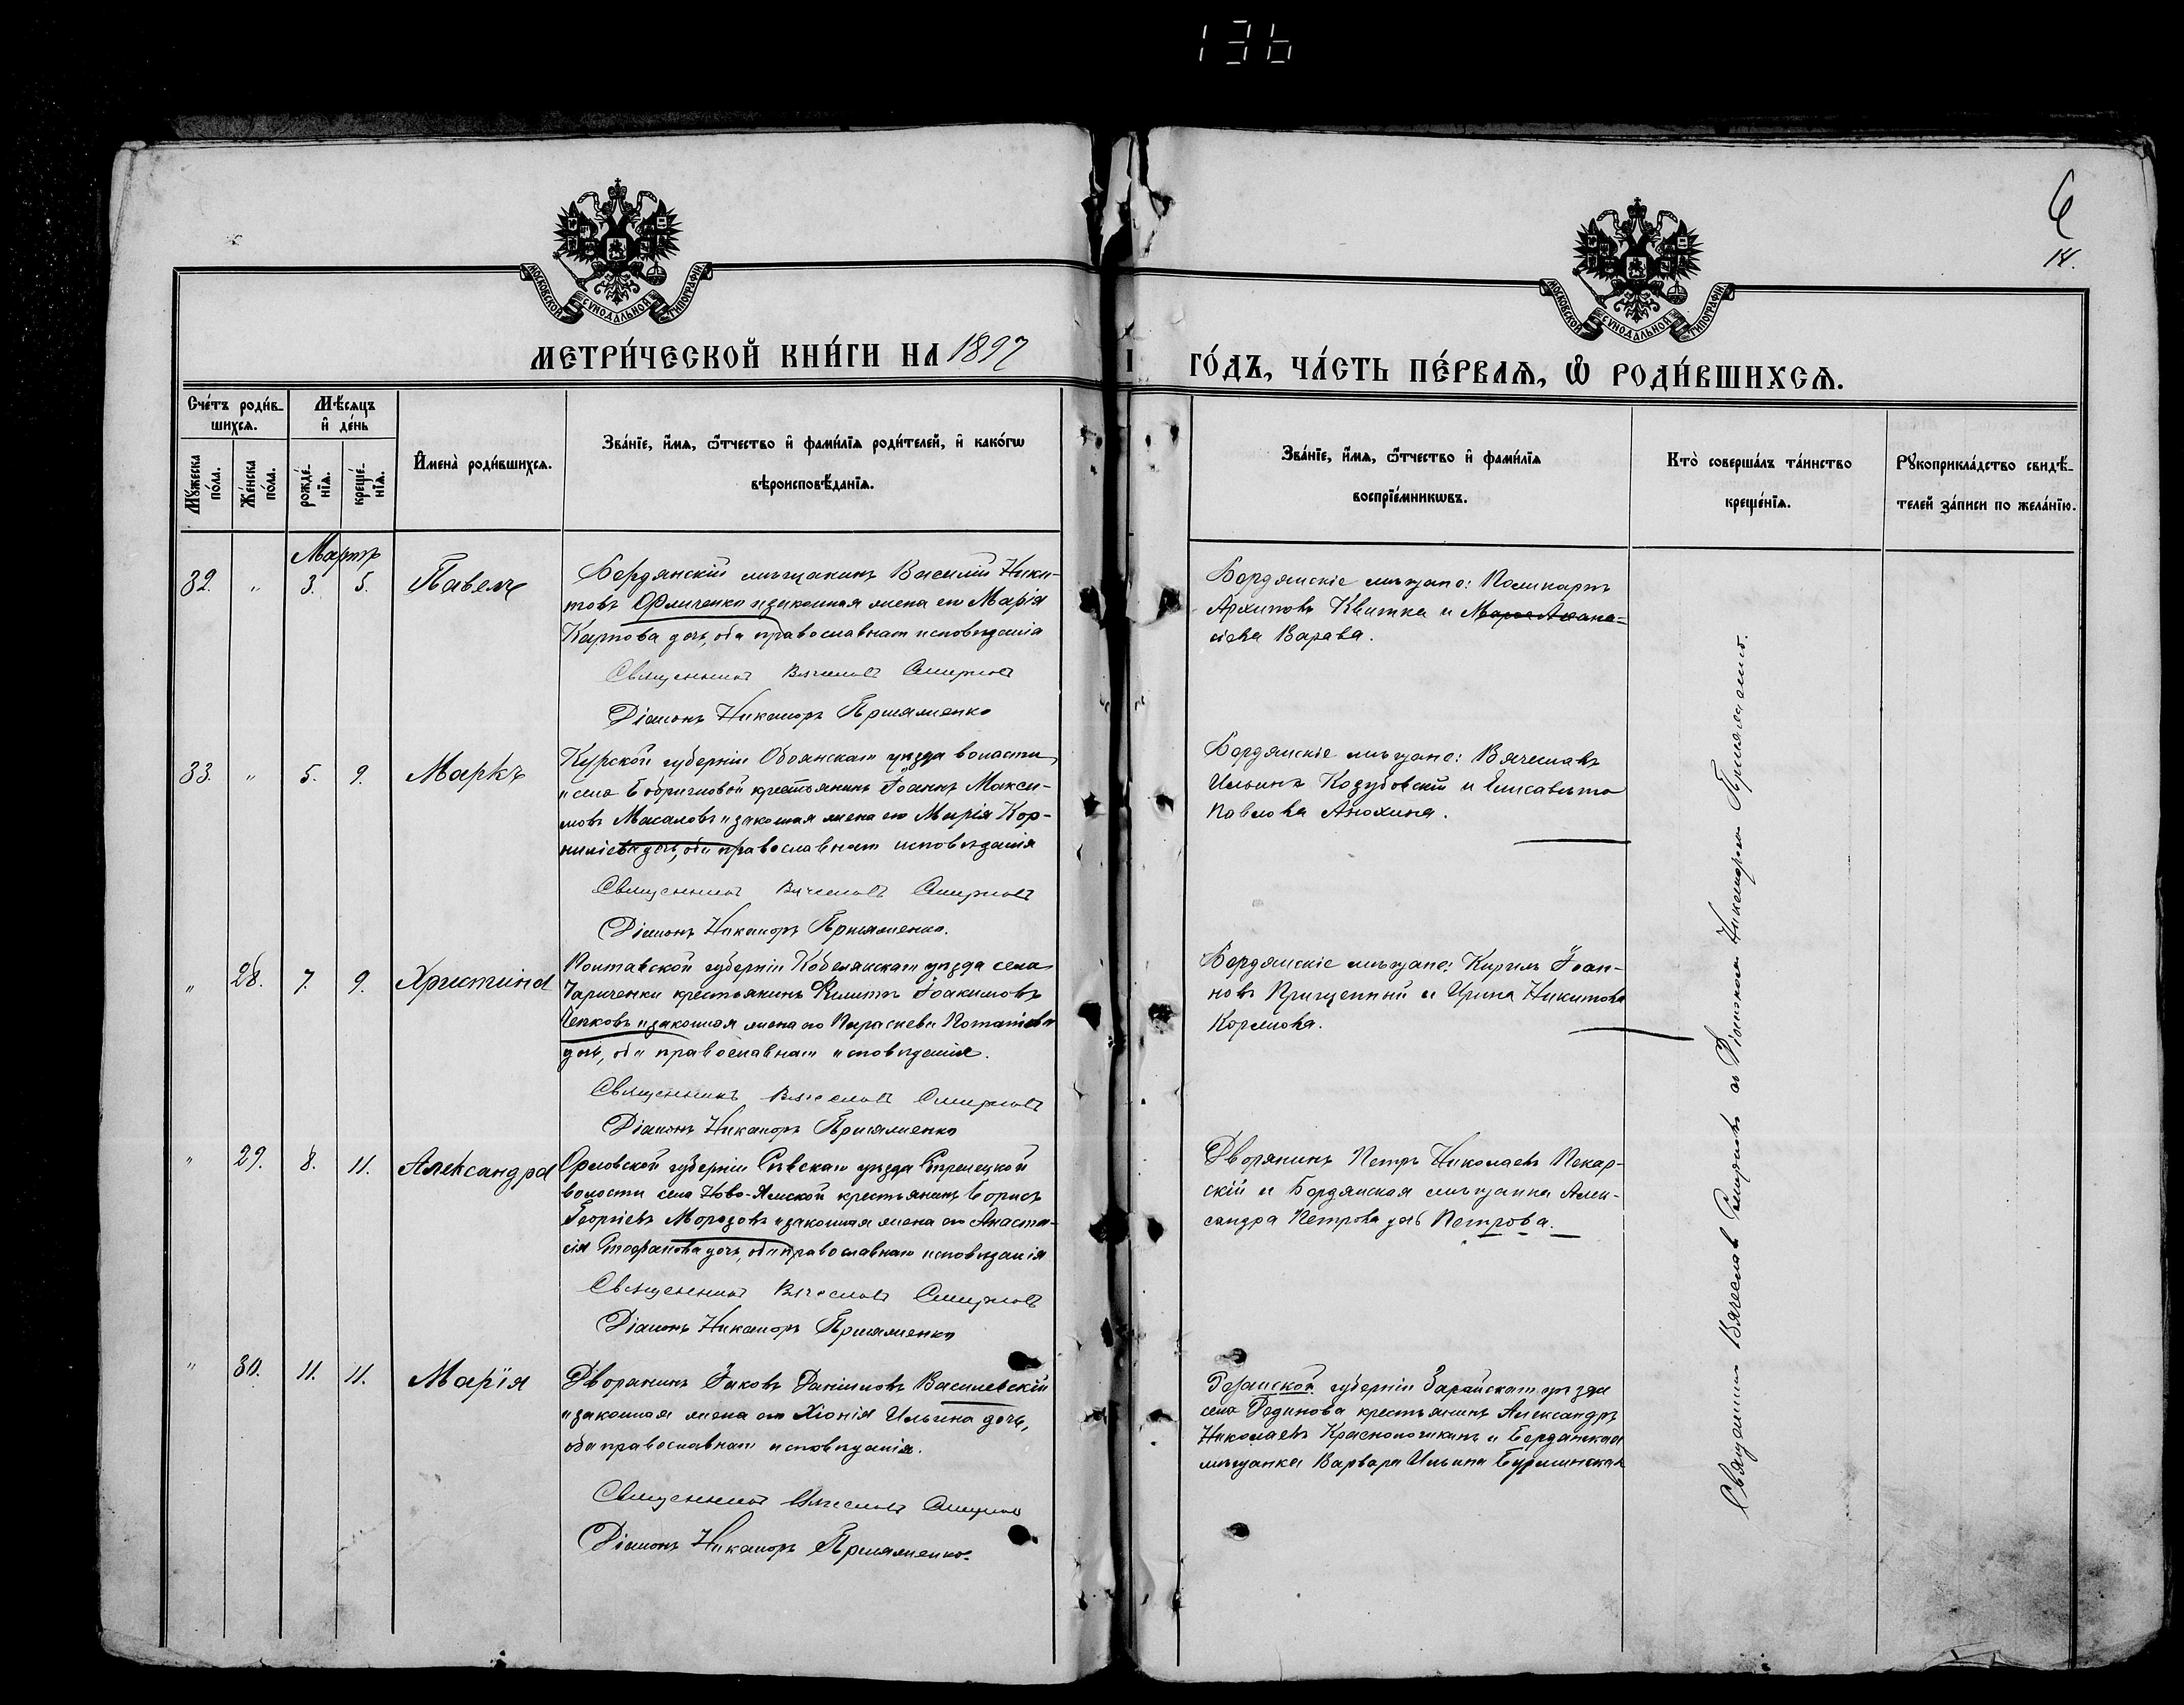 136
6
14.
МОСКОВСКОЙ СУНОДАЛЬНОЙ ТИПОГРАФІИ
МОСКОВСКОЙ СУНОДАЛЬНОЙ ТИПОГРАФІИ
МЕТРИ́ЧЕСКОЙ КНИ́ГИ НА 1897
ГО́ДЪ, ЧА́СТЬ ПЕ́РВАѦ, Ѽ РОДИ́ВШИХСѦ.
Сче́тъ роди́в-
шихсѧ.
Мѣ́сѧцъ
и҆ де́нь
Мꙋ́жеска по́ла.
Же́нска по́ла.
рожде́-
нїѧ.
креще́-
нїѧ.
И҆мена̀ роди́вшихсѧ.
Зва́нїе, и҆́мѧ, ѻ҆́тчество и҆ фами́лїѧ роди́телей, и҆ како́гѡ
вѣроисповѣ́данїѧ.
Зва́нїе, и҆́мѧ, ѻ҆́тчество и҆ фами́лїѧ
воспрїе́мникѡвъ.
Кто̀ соверша́лъ та́инство
креще́нїѧ.
Рꙋкоприкла́дство свидѣ́-
телей за́писи по жела́нїю.
Мартъ
32. " 3. 5. Павелъ
Бердянскій мѣщанинъ Василій Ники-
товъ и законная жена его Марія
Карпова дочь, оба православнаго исповѣданія
Священникъ Вячеславъ Смирновъ
Діаконъ Никаноръ
Бердянскіе мѣщане: Поликарпъ
Архиповъ Квитка и Марѳа Аѳана-
сіева Варава.
33. " 5. 9. Маркъ
Курской губерніи Обоянскаго уѣзда волости
и села крестьянинъ Іоаннъ Макси-
мовъ Масаловъ и законная жена его Марія Кор-
нилiева дочь, оба православнаго исповѣданія
Священникъ Вячеславъ Смирновъ
Діаконъ Никаноръ
Бердянскіе мѣщане: Вячеславъ
Ильинъ Козубовскій и Елисавета
Павлова Анохина.
" 28. 7. 9. Христина
Полтавской губерніи Кобелякскаго уѣзда села
Чариченки крестьянинъ Іоакимовъ
и законная жена его Параскева Потапіева
дочь, оба православнаго исповѣданія.
Священникъ Вячеславъ Смирновъ
Діаконъ Никаноръ
Бердянскіе мѣщане: Кирилъ Іоан-
новъ Прищепный и Ирина Никитова
" 29. 8. 11. Александра
Орловской губерніи Сѣвскаго уѣзда Стрелецкой
волости села Ново-Ямской крестьянинъ Борисъ
Георгіевъ Морозовъ и законная жена его Анаста-
сія Стефанова дочь, оба православнаго исповѣданія
Священникъ Вячеславъ Смирновъ
Діаконъ Никаноръ
Дворянинъ Петръ Николаевъ Пекар-
скій и Бердянская мѣщанка Алек-
сандра Петрова дочь Петрова.
" 30. 11. 11. Марія
Дворянинъ Іаковъ Даніиловъ Василевскій
и законная жена его Хіонія Ильина дочь,
оба православнаго исповѣданія.
Священникъ Вячеславъ Смирновъ
Діаконъ Никаноръ
Рязанской губерніи Зарайскаго уѣзда
села Родинова крестьянинъ Александръ
Николаевъ и Бердянская
мѣщанка Варвара Ильина
Священникъ Вячеславъ Смирновъ съ Діакономъ Никаноромъ